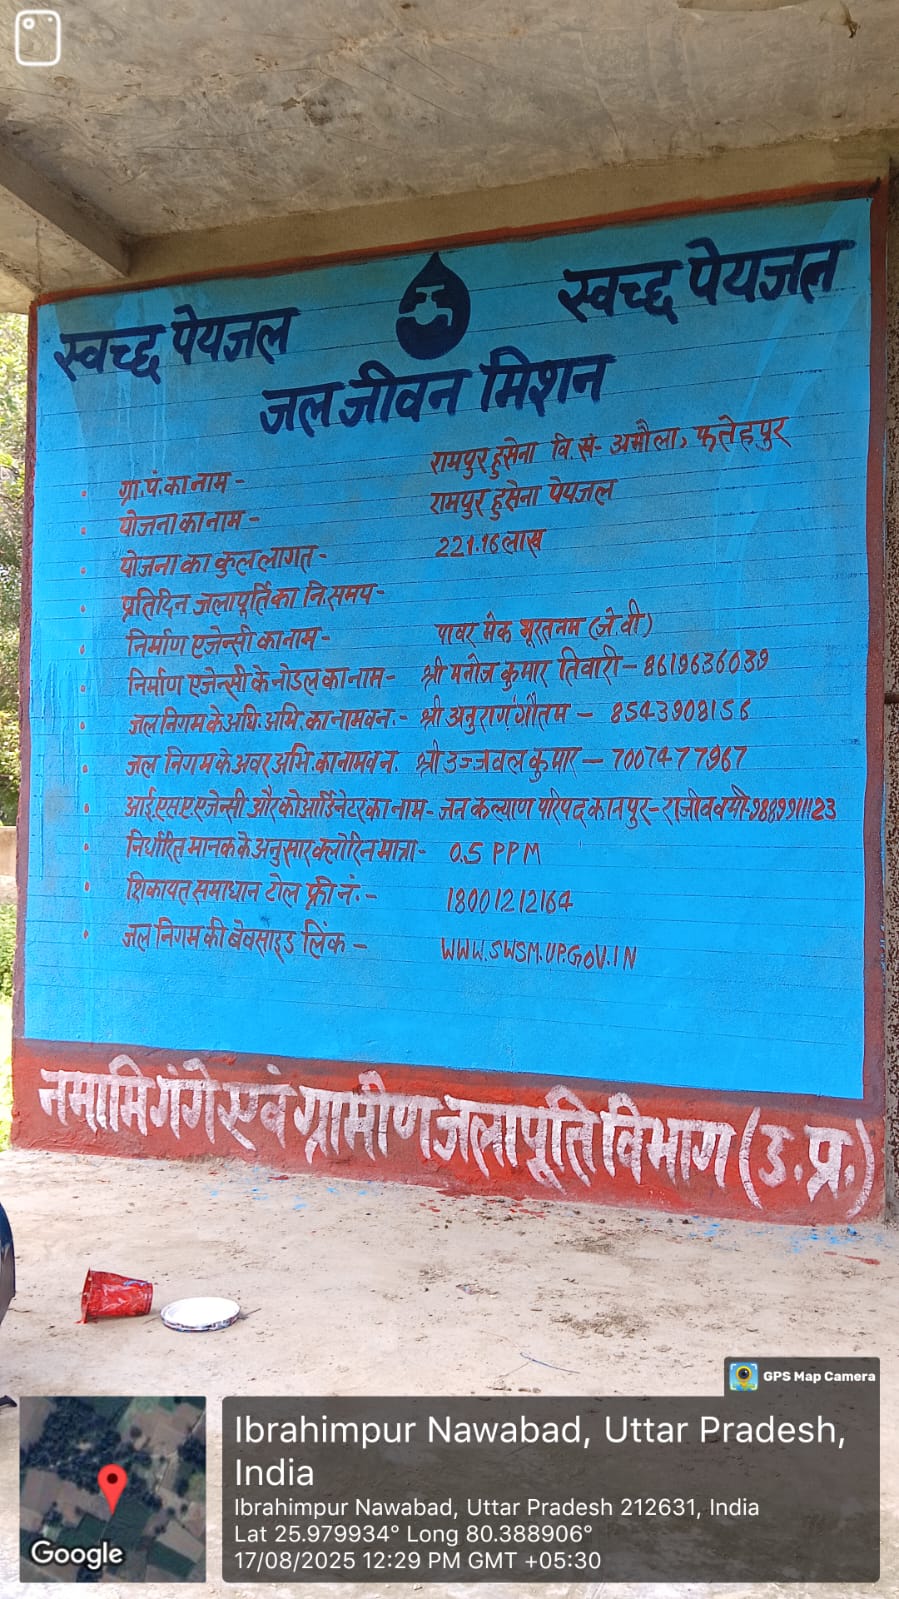 स्वच्छ पेयजल
स्वच्छ पेयजल
जल जीवन मिशन
ग्रा.पं.का नाम - रामपुर हुसेना वि.सं- अमौला, फतेहपुर
योजना का नाम - रामपुर हुसेना पेयजल
योजना का कुल लागत - 221.16 लाख
प्रतिदिन जलापूर्ति का नि.समय-
निर्माण एजेन्सी का नाम- पावर मेक भूरतनम (जे.वी)
निर्माण एजेन्सी के नोडल का नाम- श्री मनोज कुमार तिवारी - 8619636039
जल निगम के अधि. अभि. का नाम व न.- श्री अनुराग गौतम - 8543908156
जल निगम के अवर अभि. का नाम व न. श्री उज्जवल कुमार - 7007477967
आई.एस.ए. एजेन्सी और कोआर्डिनेटर का नाम- जन कल्याण परिषद कानपुर- राजीव वर्मा-9889911123
निर्धारित मानक के अनुसार क्लोरिन मात्रा- 0.5 PPM
शिकायत समाधान टोल फ्री नं.- 18001212164
जल निगम की बेवसाइड लिंक - WWW.SWSM.UP.GOV.IN
नमामि गंगे एवं ग्रामीण जलापूर्ति विभाग (उ.प्र.)
GPS Map Camera
Ibrahimpur Nawabad, Uttar Pradesh,
India
Ibrahimpur Nawabad, Uttar Pradesh 212631, India
Lat 25.979934° Long 80.388906°
17/08/2025 12:29 PM GMT +05:30
Google